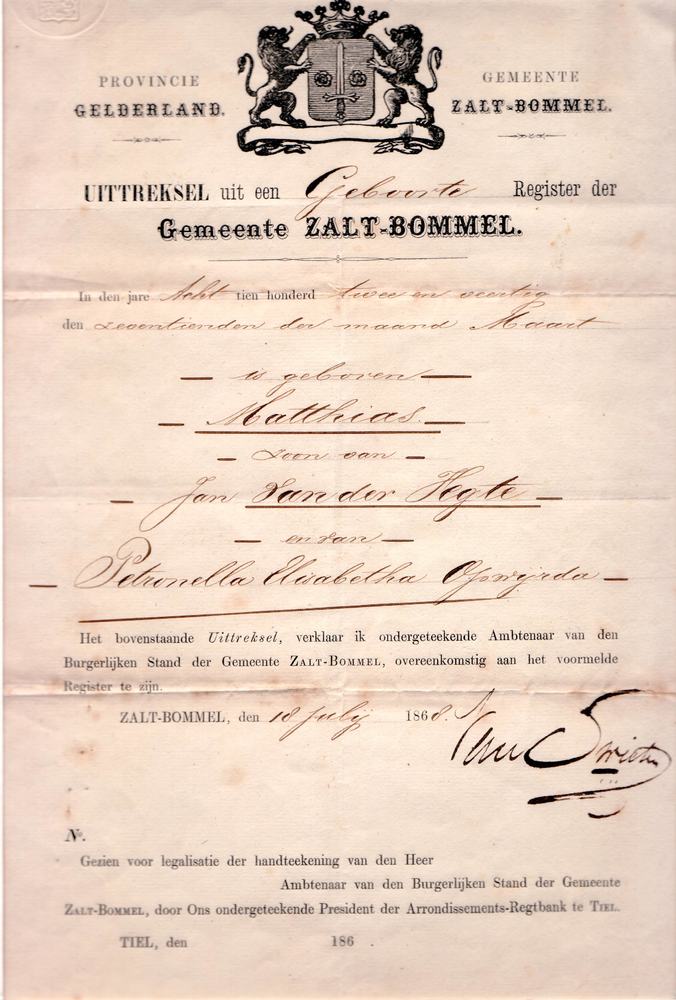 PROVINCIE
GELDERLAND.
GEMEENTE
ZALT-BOMMEL.
UITTREKSEL uit een Geboorte Register der
Gemeente ZALT-BOMMEL.
In den jare Acht tien honderd twee en veertig
den zeventienden der maand Maart
is geboren
Matthias
zoon van
Jan van der Hegte
en van
Petronella Elisabetha Opwyrda
Het bovenstaande Uittreksel, verklaar ik ondergeteekende Ambtenaar van den
Burgerlijken Stand der Gemeente ZALT-BOMMEL, overeenkomstig aan het voormelde
Register te zijn.
ZALT-BOMMEL, den 18 July 1868.
Van Swieten
N.
Gezien voor legalisatie der handteekening van den Heer
Ambtenaar van den Burgerlijken Stand der Gemeente
ZALT-BOMMEL, door Ons ondergeteekende President der Arrondissements-Regtbank te TIEL.
TIEL, den 186 .